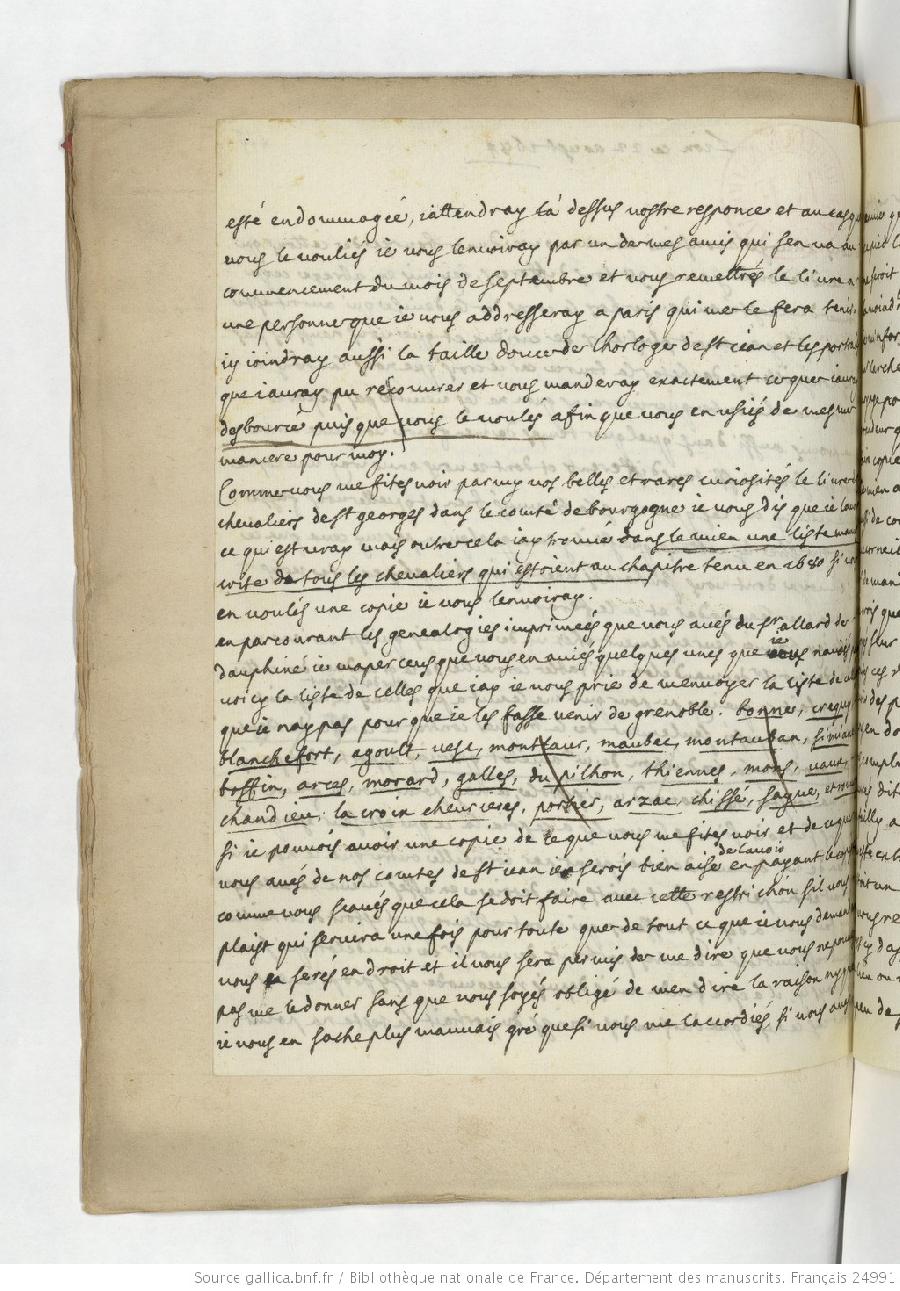 esté endommagée, iattendray la dessus vostre responce et au cas q
vous le vouliés ie vous lenvoiray par un de mes amis qui sen va au
commencement du mois de septembre et vous remettrés le livre a
une personne que ie vous addresseray a paris qui me le fera tenir
iy ioindray aussi la taille douce de lhorloge de st iean et les portai
que iauray pu recouvrer et vous manderay exactement ce que iauray
desbourcé puis que vous le voulés afin que vous en usiés de mesme
maniere pour moy.
Comme vous me fites voir parmy vos belles et rares curiosités le livre de
chevaliers de st georges dans le comté de bourgogne ie vous dis que ie lav
ce qui est vray mais outre cela iay trouvé dans le mien une liste man
crite de tous les chevaliers qui estoient au chapitre tenu en 1680 si v
en voulés une copie ie vous lenvoiray.
en parcourant les genealogies imprimées que vous avés du sr allard de
dauphiné ie mapercens que vous en aviés quelques unes que ie navois p
voicy la liste de celles que iay ie vous prie de menvoyer la liste de
que ie nay pas pour que ie les fasse venir de grenoble. bonne, crequy
blanchefort, agoult, vesc, montlaur, maubec, montauban, simia
boffin, arces, morard, galles, du pilhon, thiennes, mons, vaux,
chandieu, la croix chevrieres, portier, arzac, chissé, sague, et
si ie pouvois avoir une copie de ce que vous me fites voir et de ce qu
vous avés de nos comtes de st iean ie serois bien aise de lavoir en payant le cop
comme vous scavés que cela se doit faire avec cette restriction sil vous
plaist qui servira une fois pour toute que de tout ce que ie vous deman
vous serés en droit et il vous sera permis de me dire que vous ne pouv
pas me le donner sans que vous soyés obligé de men dire la raison ny q
ie vous en sache plus mauvais gré que si vous me laccordiés si vous av
Source gallica.bnf.fr / Bibliothèque nationale de France. Département des manuscrits. Français 24991